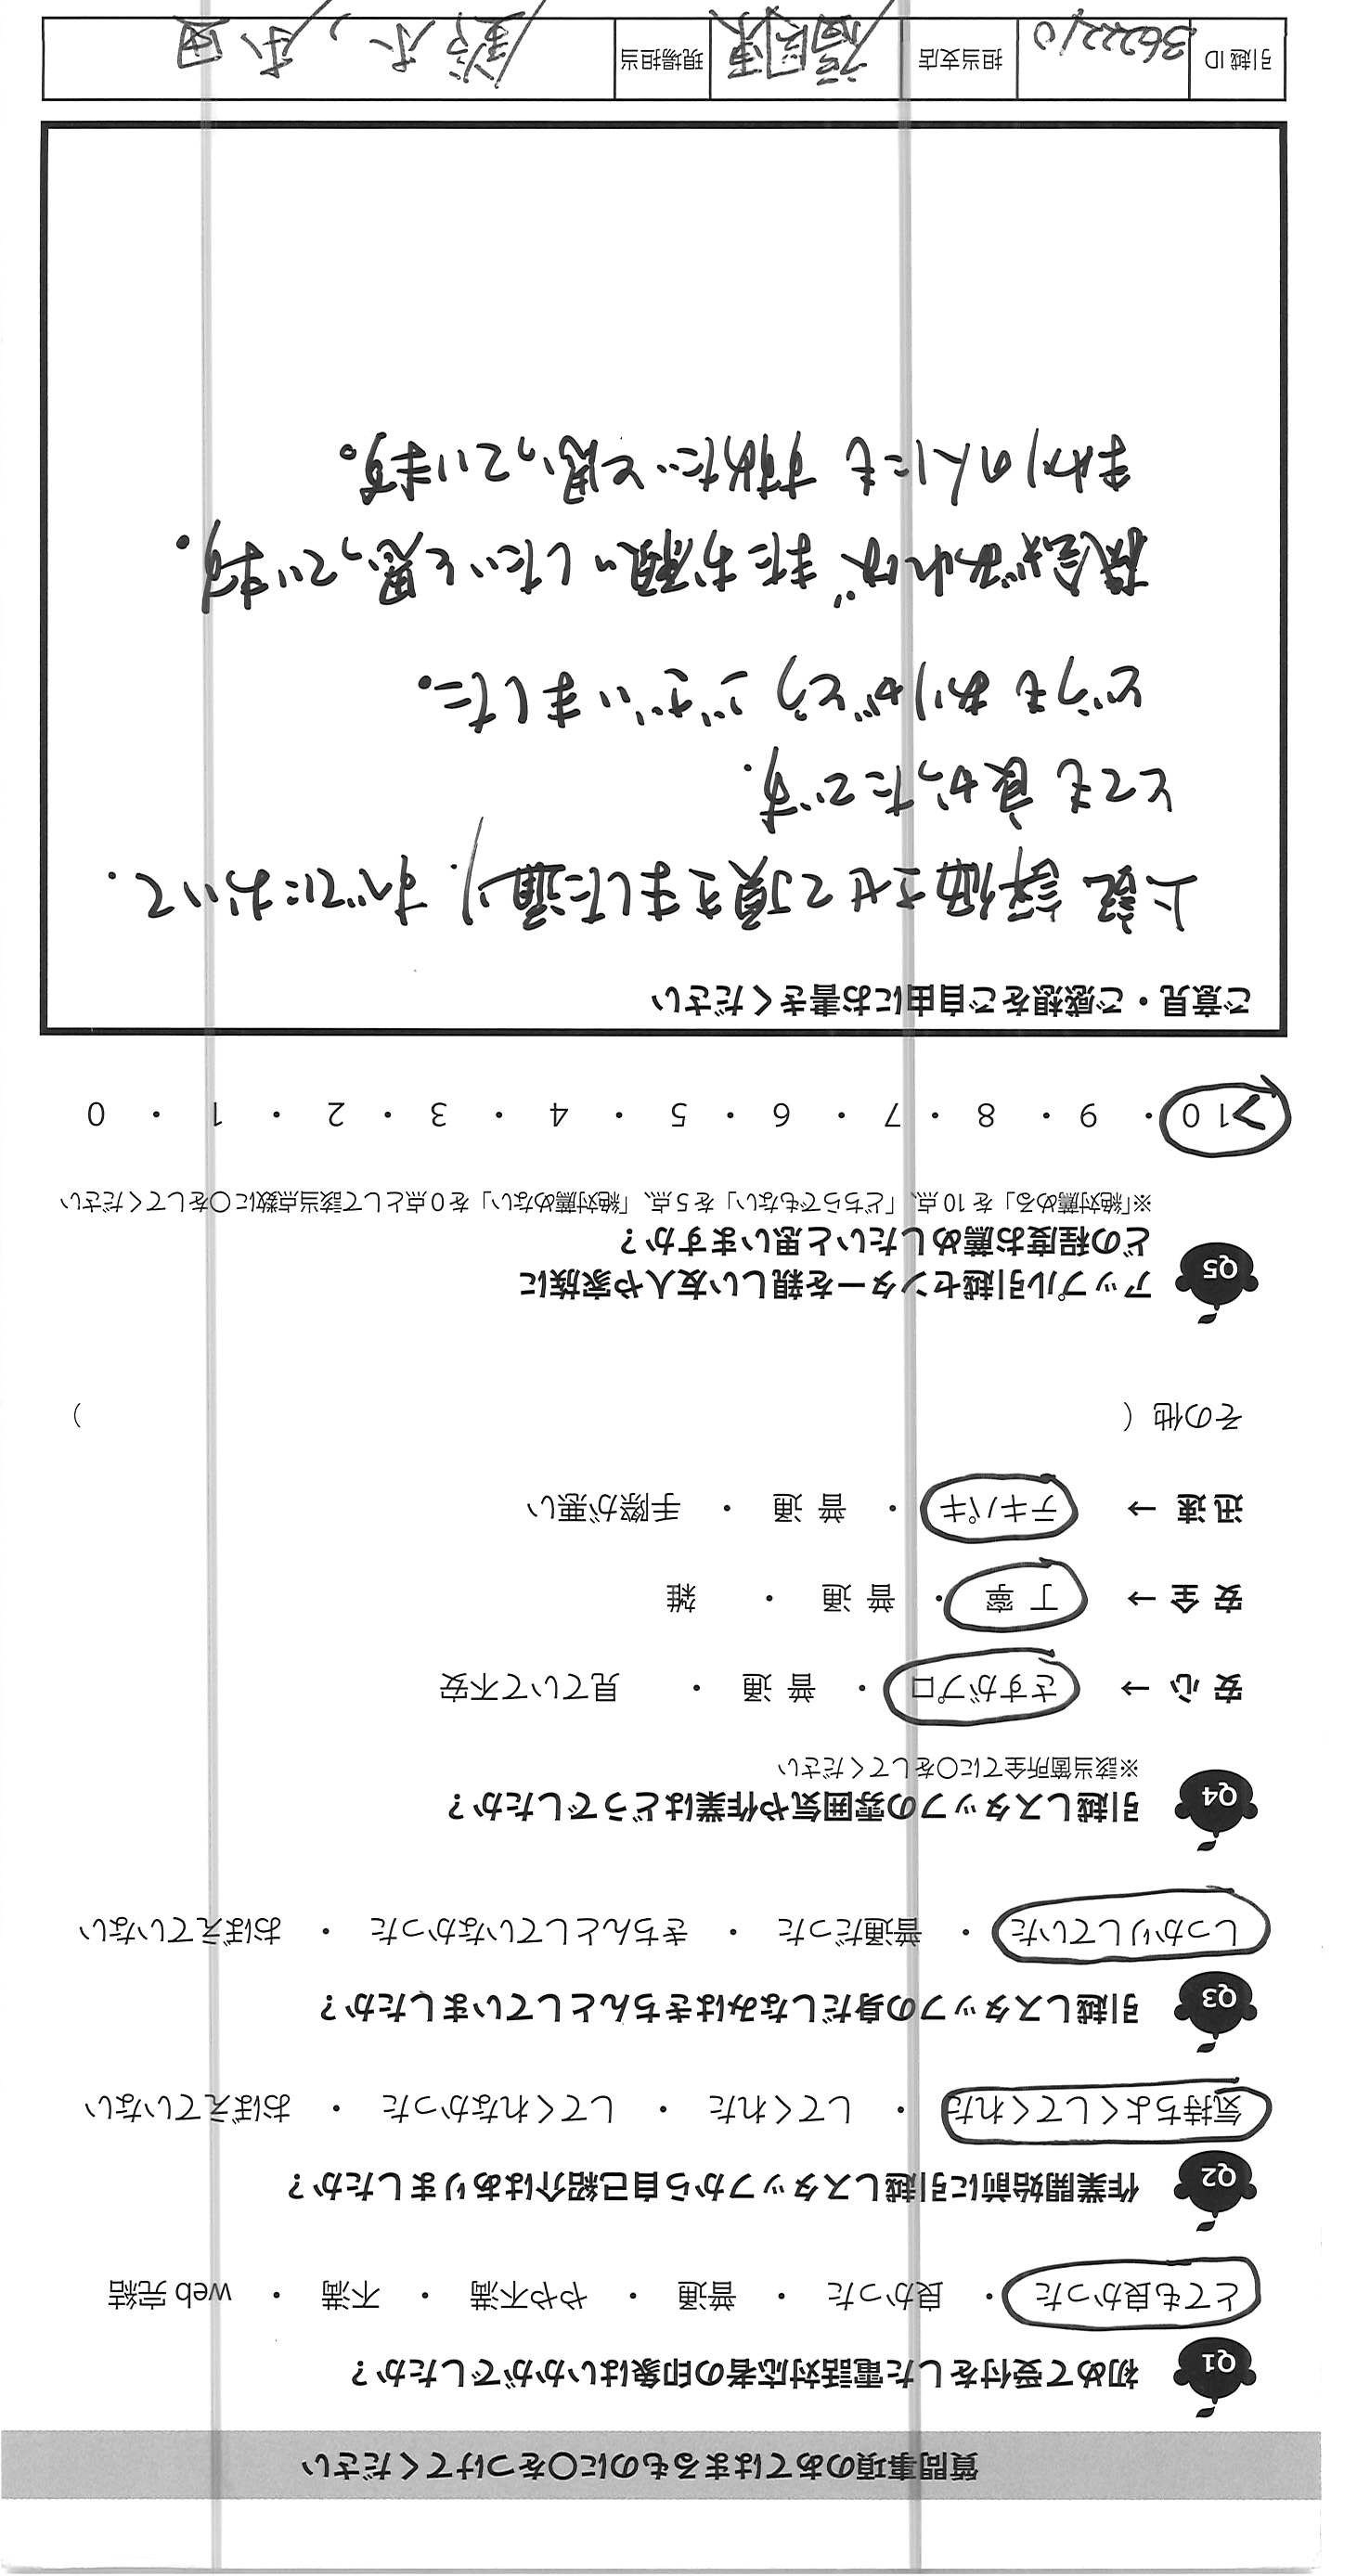 質問事項のあてはまるものに〇をつけてください
Q1 初めて受付をした電話対応者の印象はいかがでしたか？
とても良かった ・ 良かった ・ 普通 ・ やや不満 ・ 不満 ・ web 完結
Q2 作業開始前に引越しスタッフから自己紹介はありましたか？
気持ちよくしてくれた ・ してくれた ・ してくれなかった ・ おぼえていない
Q3 引越しスタッフの身だしなみはきちんとしていましたか？
しっかりしていた ・ 普通だった ・ きちんとしていなかった ・ おぼえていない
Q4 引越しスタッフの雰囲気や作業はどうでしたか？
※該当箇所全てに〇をしてください
安 心 → さすがプロ ・ 普 通 ・ 見ていて不安
安 全 → 丁 寧 ・ 普 通 ・ 雑
迅 速 → テキパキ ・ 普 通 ・ 手際が悪い
その他（ ）
Q5 アップル引越センターを親しい友人や家族に
どの程度お薦めしたいと思いますか？
※「絶対薦める」を 10 点、「どちらでもない」を 5 点、「絶対薦めない」を 0 点として該当点数に〇をしてください
10 ・ 9 ・ 8 ・ 7 ・ 6 ・ 5 ・ 4 ・ 3 ・ 2 ・ 1 ・ 0
ご意見・ご感想をご自由にお書きください
上記 評価させて頂きました通り、すべてにおいて、
とても良かったです。
どうもありがとうございました。
機会があれば、またお願いしたいと思っています。
まわりの人にも すすめたいと思っています。
引越 ID 362210 担当支店 福岡東 現場担当 鈴木、本田